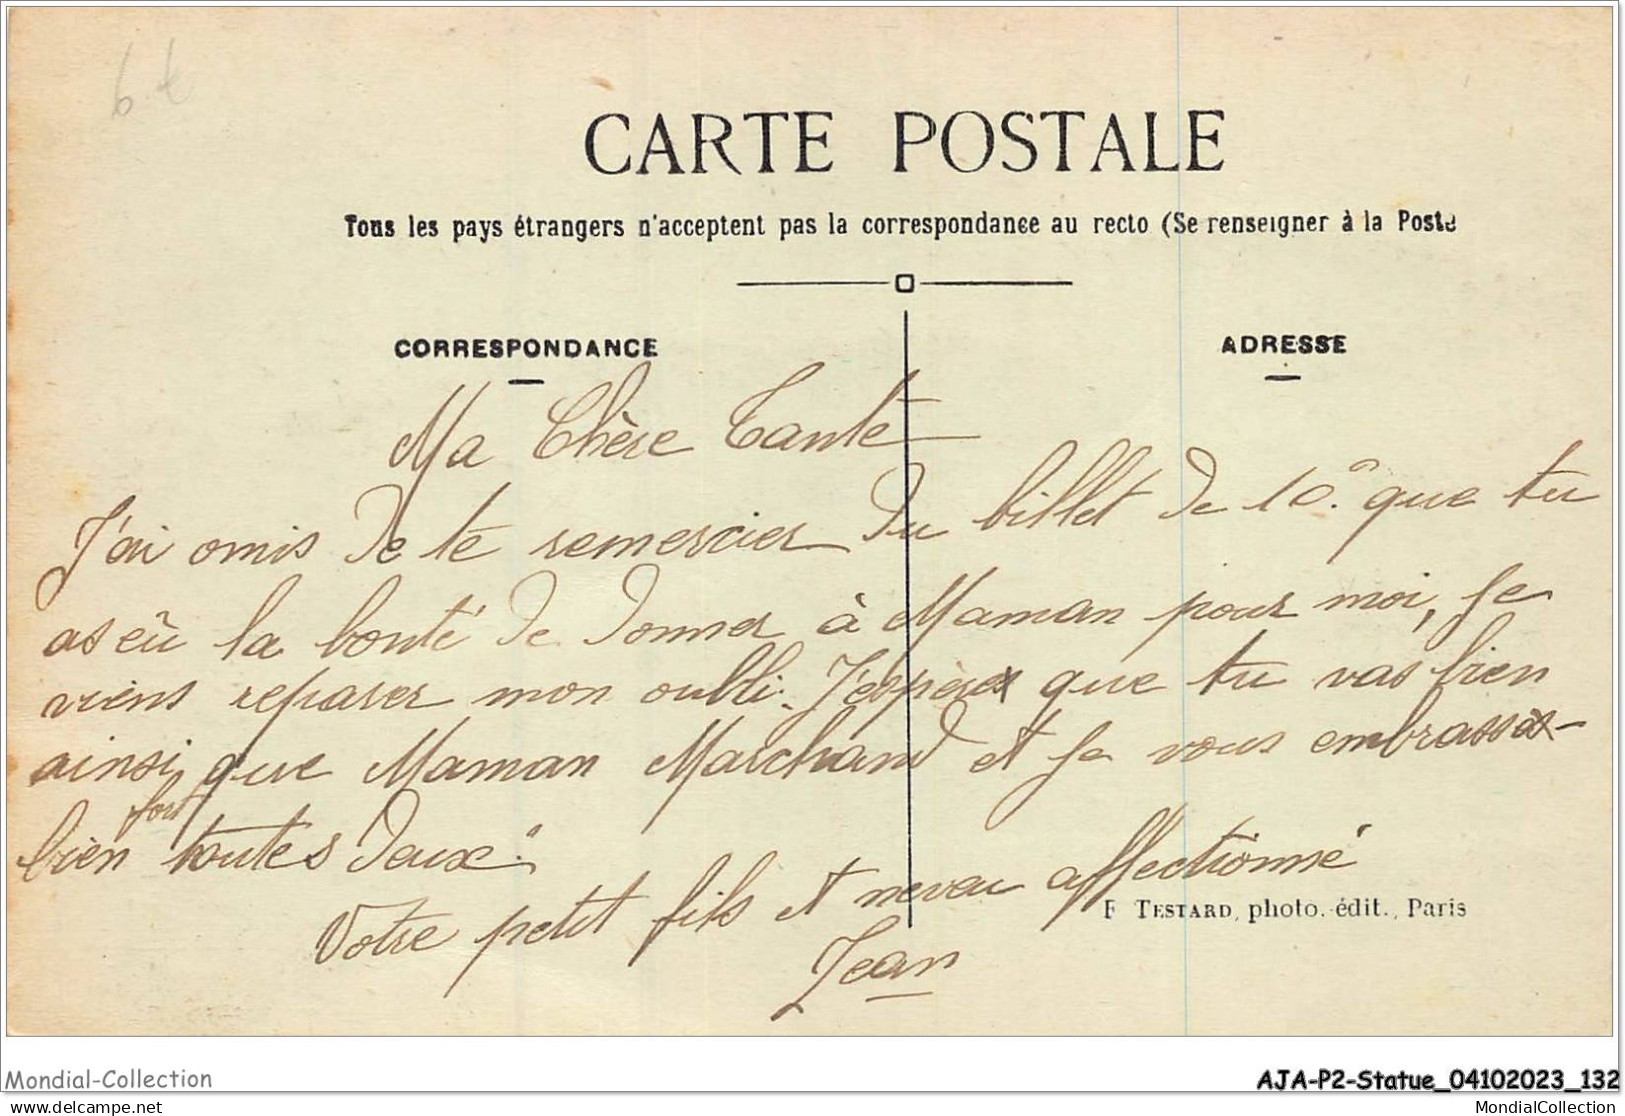 6 t
CARTE POSTALE
Tous les pays étrangers n'acceptent pas la correspondance au recto (Se renseigner à la Poste
CORRESPONDANCE
ADRESSE
Ma Chère Tante
J'ai omis de te remercier du billet de 10. que tu
as eû la bonté de donner à Maman pour moi, je
viens reparer mon oubli. J'espère que tu vas bien
ainsi que Maman Marchand et je vous embrasse
fort
bien toutes deux.
Votre petit fils et neveu affectionné
Jean
F TESTARD, photo. édit., Paris
Mondial-Collection
AJA-P2-Statue_04102023_132
delcampe.net
MondialCollection